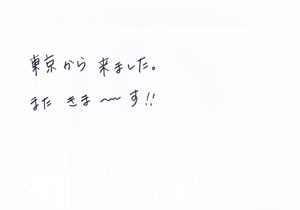 東京から 来ました。
また きま〜〜す!!